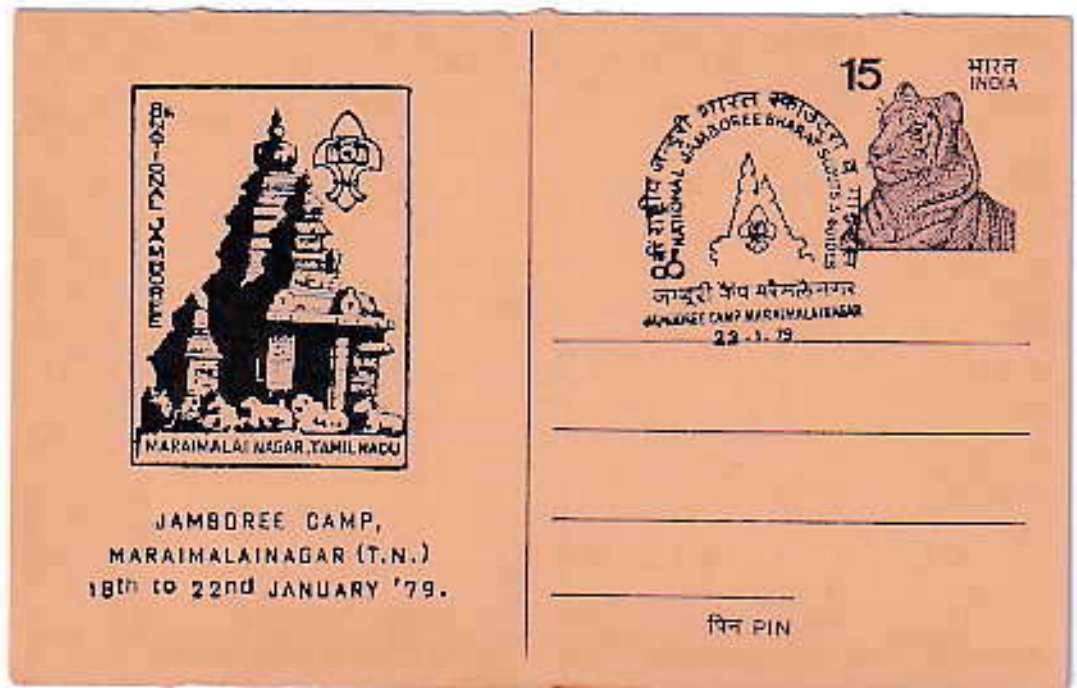 8th NATIONAL JAMBOREE
MARAIMALAI NAGAR, TAMIL NADU
JAMBOREE CAMP,
MARAIMALAINAGAR (T.N.)
18th to 22nd JANUARY '79.
15
भारत
INDIA
8वीं राष्ट्रीय जम्बूरी भारत स्काउट्स व गाइड्स
8th NATIONAL JAMBOREE BHARAT SCOUTS & GUIDES
जम्बूरी कैंप मरैमलैनगर
JAMBOREE CAMP MARAIMALAINAGAR
22.1.79
पिन PIN